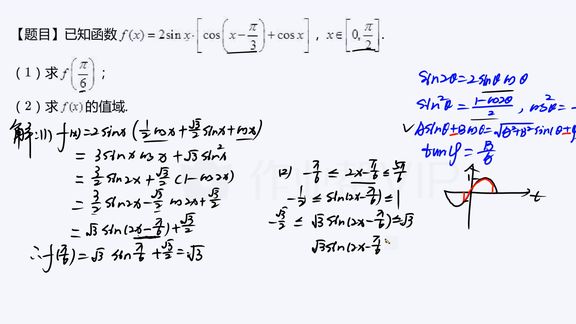 【题目】已知函数 f(x)=2sin x·[cos(x-π/3)+cos x]，x∈[0,π/2].
（1）求 f(π/6)；
（2）求 f(x) 的值域.
解:(1) f(x)=2sinx(1/2 cosx+√3/2 sinx+cosx)
=3sinx cosx+√3 sin²x
=3/2 sin2x+√3/2 (1-cos2x)
=3/2 sin2x-√3/2 cos2x+√3/2
=√3 sin(2x-π/6)+√3/2
∴f(π/6)=√3 sin π/6+√3/2=√3
(2) -π/6≤2x-π/6≤5π/6
-1/2≤sin(2x-π/6)≤1
-√3/2≤√3 sin(2x-π/6)≤√3
√3sin(2x-π/6
sin2θ=2sinθcosθ
sin²θ=(1-cos2θ)/2, cos²θ=
√Asinθ±Bcosθ=√(A²+B²)sin(θ±φ
tanφ=B/A
t